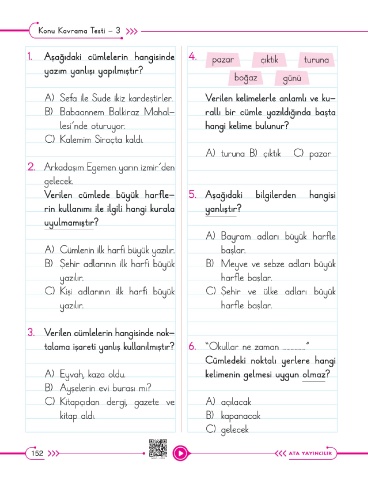 Konu Kavrama Testi – 3
1. Aşağıdaki cümlelerin hangisinde
yazım yanlışı yapılmıştır?
A) Sefa ile Sude ikiz kardeştirler.
B) Babaannem Balkiraz Mahal-
lesi'nde oturuyor.
C) Kalemim Siraçta kaldı.
2. Arkadaşım Egemen yarın izmir'den
gelecek.
Verilen cümlede büyük harfle-
rin kullanımı ile ilgili hangi kurala
uyulmamıştır?
A) Cümlenin ilk harfi büyük yazılır.
B) Şehir adlarının ilk harfi büyük
yazılır.
C) Kişi adlarının ilk harfi büyük
yazılır.
3. Verilen cümlelerin hangisinde nok-
talama işareti yanlış kullanılmıştır?
A) Eyvah, kaza oldu.
B) Ayselerin evi burası mı?
C) Kitapçıdan dergi, gazete ve
kitap aldı.
4. pazar çıktık turuna
boğaz günü
Verilen kelimelerle anlamlı ve ku-
rallı bir cümle yazıldığında başta
hangi kelime bulunur?
A) turuna B) çıktık C) pazar
5. Aşağıdaki bilgilerden hangisi
yanlıştır?
A) Bayram adları büyük harfle
başlar.
B) Meyve ve sebze adları büyük
harfle başlar.
C) Şehir ve ülke adları büyük
harfle başlar.
6. "Okullar ne zaman ............"
Cümledeki noktalı yerlere hangi
kelimenin gelmesi uygun olmaz?
A) açılacak
B) kapanacak
C) gelecek
152
ATA YAYINCILIK